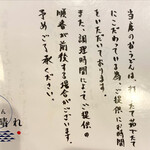 当店のおうどんは、打ちたて茹でたて
にこだわっている為、ご提供にお時間
をいただいております。
また、調理時間によってご提供の
順番が前後する場合がございます。
予めご了承ください。
晴れ